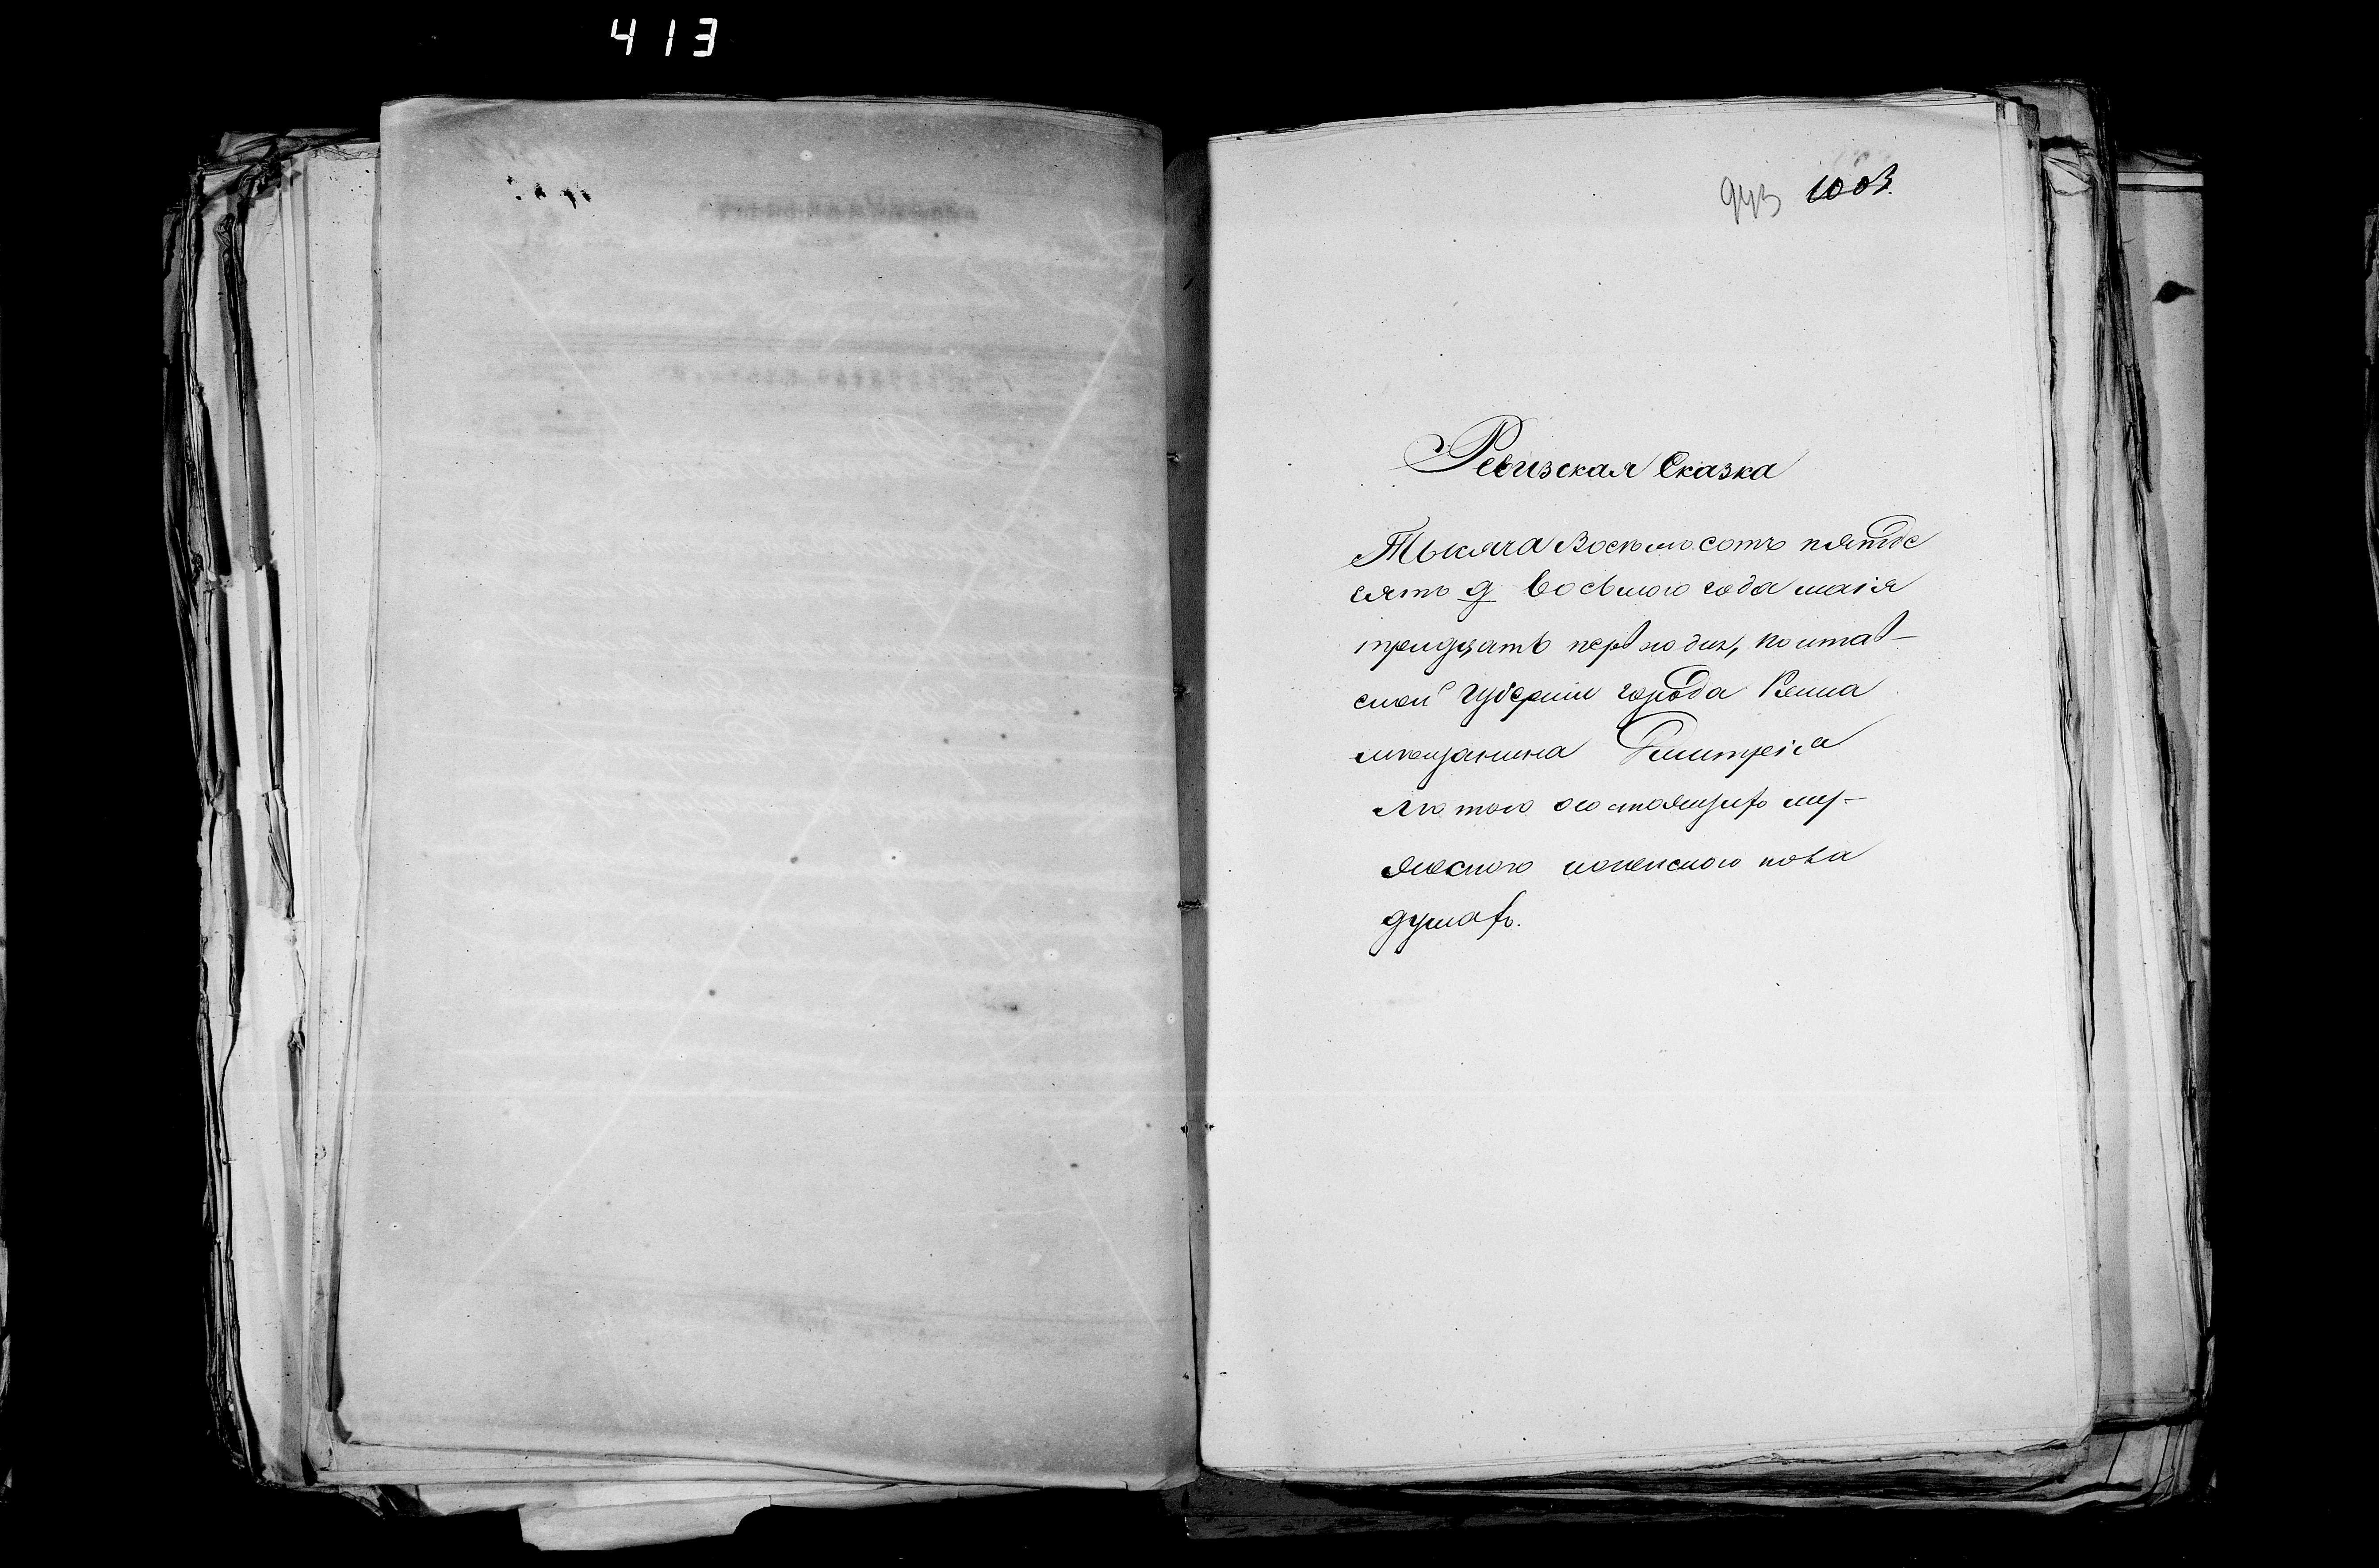 413
943 1003.
Ревизская Сказка
Тысяча Восемьсотъ пятьде
сятъ д Восьмого года маія
тридцать перваго дня, полтав-
ской Губерніи города
мѣщанина Дмитрія
Лютого о состоящихъ му-
жеского женского пола
душахъ.